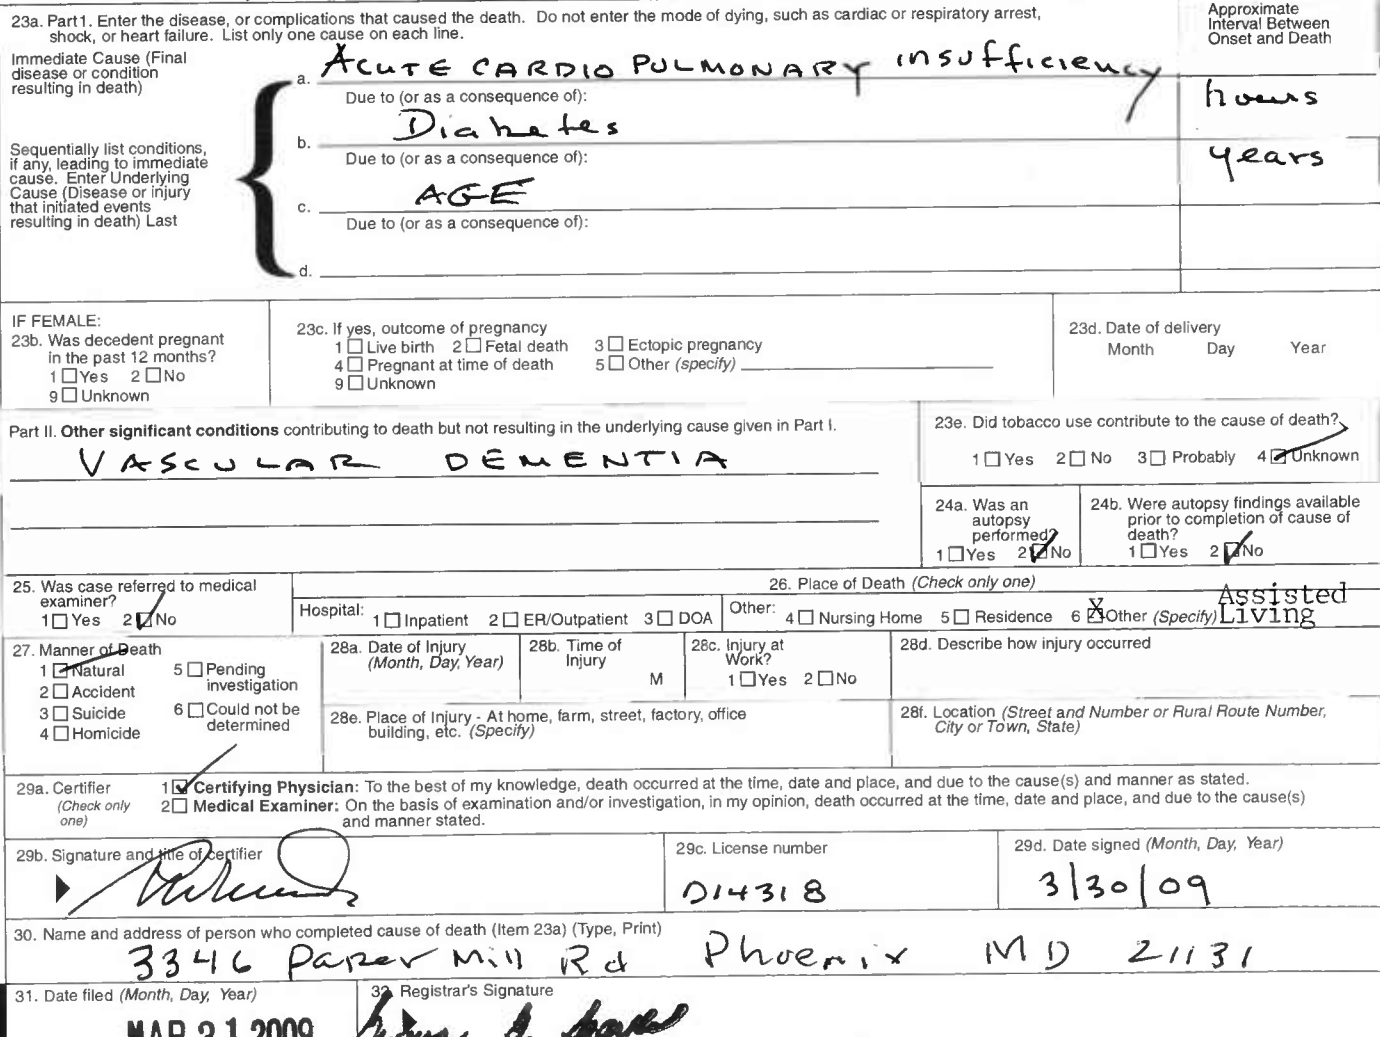 23a. Part1. Enter the disease, or complications that caused the death. Do not enter the mode of dying, such as cardiac or respiratory arrest,
shock, or heart failure. List only one cause on each line.
Approximate
Interval Between
Onset and Death
Immediate Cause (Final
disease or condition
resulting in death)
a. ACUTE CARDIO PULMONARY insufficiency
hours
Due to (or as a consequence of):
Sequentially list conditions,
if any, leading to immediate
cause. Enter Underlying
Cause (Disease or injury
that initiated events
resulting in death) Last
b. Diabetes
years
Due to (or as a consequence of):
c. AGE
Due to (or as a consequence of):
d.
IF FEMALE:
23b. Was decedent pregnant
in the past 12 months?
1 Yes 2 No
9 Unknown
23c. If yes, outcome of pregnancy
1 Live birth 2 Fetal death 3 Ectopic pregnancy
4 Pregnant at time of death 5 Other (specify)
9 Unknown
23d. Date of delivery
Month Day Year
Part II. Other significant conditions contributing to death but not resulting in the underlying cause given in Part I.
VASCULAR DEMENTIA
23e. Did tobacco use contribute to the cause of death?
1 Yes 2 No 3 Probably 4 Unknown
24a. Was an
autopsy
performed?
1 Yes 2 No
24b. Were autopsy findings available
prior to completion of cause of
death?
1 Yes 2 No
25. Was case referred to medical
examiner?
1 Yes 2 No
26. Place of Death (Check only one)
Hospital: 1 Inpatient 2 ER/Outpatient 3 DOA
Other: 4 Nursing Home 5 Residence 6 X Other (Specify) Assisted
Living
27. Manner of Death
1 Natural 5 Pending
investigation
2 Accident
3 Suicide 6 Could not be
determined
4 Homicide
28a. Date of Injury
(Month, Day, Year)
28b. Time of
Injury
M
28c. Injury at
Work?
1 Yes 2 No
28d. Describe how injury occurred
28e. Place of Injury - At home, farm, street, factory, office
building, etc. (Specify)
28f. Location (Street and Number or Rural Route Number,
City or Town, State)
29a. Certifier
(Check only
one)
1 Certifying Physician: To the best of my knowledge, death occurred at the time, date and place, and due to the cause(s) and manner as stated.
2 Medical Examiner: On the basis of examination and/or investigation, in my opinion, death occurred at the time, date and place, and due to the cause(s)
and manner stated.
29b. Signature and title of certifier
29c. License number
D14318
29d. Date signed (Month, Day, Year)
3/30/09
30. Name and address of person who completed cause of death (Item 23a) (Type, Print)
3346 Paper Mill Rd Phoenix MD 21131
31. Date filed (Month, Day, Year)
MAR 31 2009
32. Registrar's Signature